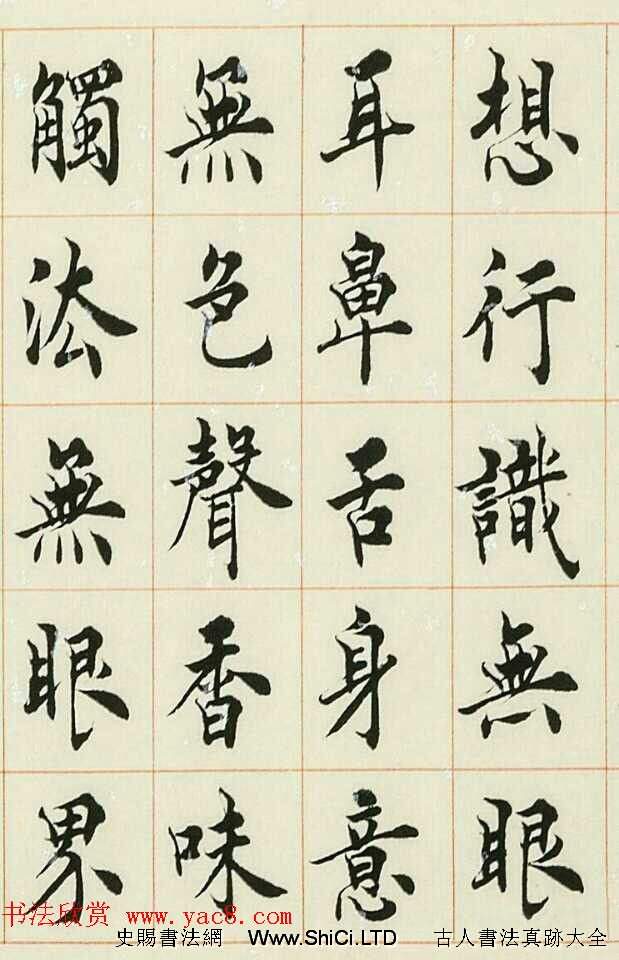 想行識無眼
耳鼻舌身意
無色聲香味
觸法無眼界
书法欣赏 www.yac8.com
史賜書法網 Www.ShiCi.LTD 古人書法真跡大全